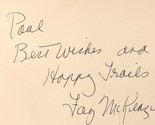 Paul
Best Wishes and
Happy Trails
Fay McKenzie